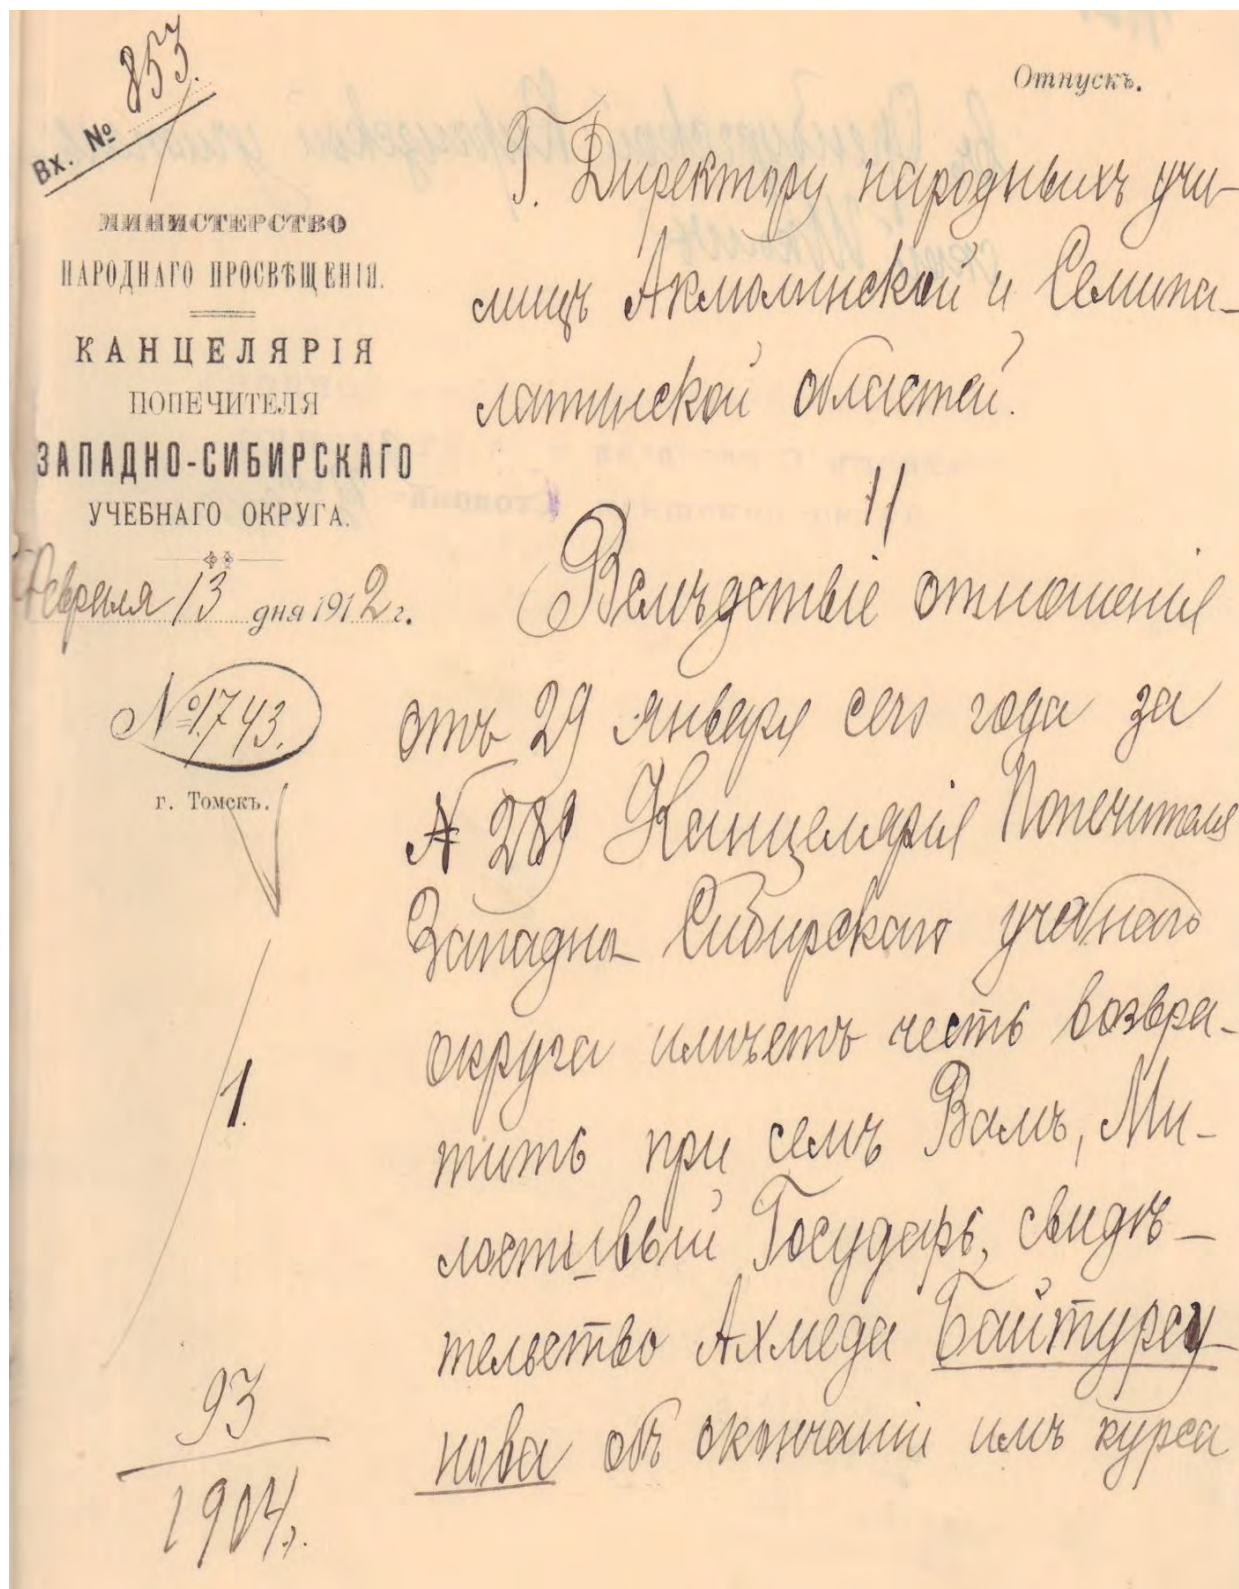 Вх. № 853.
МИНИСТЕРСТВО
НАРОДНАГО ПРОСВѢЩЕНІЯ.
КАНЦЕЛЯРІЯ
ПОПЕЧИТЕЛЯ
ЗАПАДНО-СИБИРСКАГО
УЧЕБНАГО ОКРУГА.
Февраля 13 дня 1912 г.
№ 1743.
г. Томскъ.
1.
93
1904 г.
Отпускъ.
Г. Директору народныхъ учи-
лищъ Акмолинской и Семипа-
латинской областей.
Вслѣдствіе отношенія
отъ 29 января сего года за
№ 289 Канцелярія Попечителя
Западно-Сибирскаго учебнаго
округа имѣетъ честь возвра-
тить при семъ Вамъ, Ми-
лостивый Государь, свидѣ-
тельство Ахмеда Байтурсу-
нова объ окончаніи имъ курса